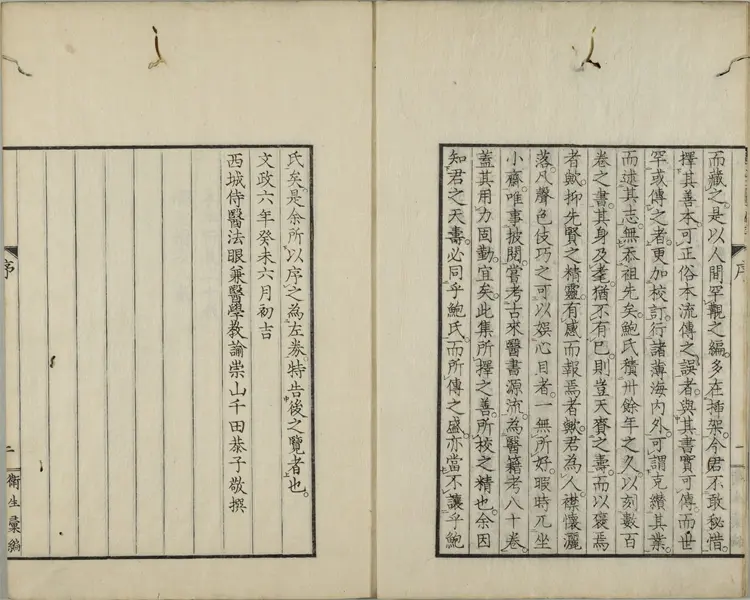 而藏之。是以人間罕覯之編。多在揷架。今君不敢秘惜。
擇其善本可正俗本流傳之誤者。與其書實可傳。而世
罕或傳之者。更加校訂。行諸薄海內外。可謂克纘其業。
而述其志。無忝祖先矣。鮑氏積卅餘年之久。以刻數百
卷之書。其身及耄。猶不有已。則豈天賚之壽。而以褒焉
者歟。抑先賢之精靈。有感而報焉者歟。君為人。襟懷灑
落。凡聲色伎巧之可以娯心目者。一無所好。暇時兀坐
小齋。唯事披閱。嘗考古來醫書源流。為醫籍考八十卷。
蓋其用力固勤。宜矣。此集所擇之善。所校之精也。余因
知君之天壽。必同乎鮑氏。而所傳之盛。亦當不讓乎鮑
氏矣。是余所以序之為左券。特告後之覽者也。
文政六年癸未六月初吉
西城侍醫法眼兼醫學教諭崇山千田恭子敬撰
序
二
衛生彙編